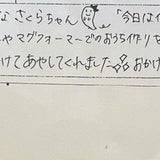 な さくらちゃん 「今日は
やマグフォーマーでのおうち作りを
けてあやしてくれました おかげ